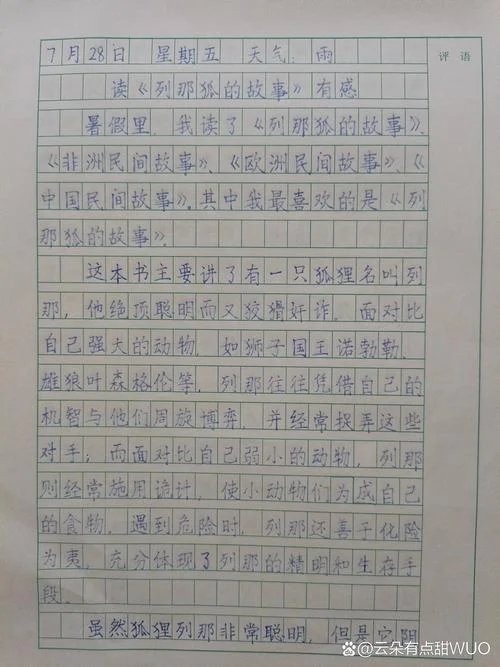 7月28日 星期五 天气:雨
评语
读《列那狐的故事》有感
暑假里,我读了《列那狐的故事》、
《非洲民间故事》、《欧洲民间故事》、《
中国民间故事》。其中我最喜欢的是《列
那狐的故事》。
这本书主要讲了有一只狐狸名叫列
那,他绝顶聪明而又狡猾奸诈。面对比
自己强大的动物,如狮子国王诺勃勒、
雄狼叶森格伦等,列那往往凭借自己的
机智与他们周旋博弈,并经常捉弄这些
对手;而面对比自己弱小的动物,列那
则经常施用诡计,使小动物们为成自己
的食物。遇到危险时,列那还善于化险
为夷,充分体现了列那的精明和生存手
段。
虽然狐狸列那非常聪明,但是它阴
@云朵有点甜WUO